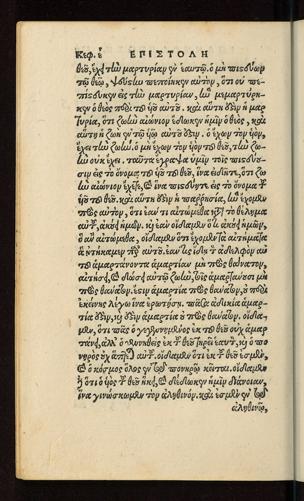 Κεφ. ε ΕΠΙΣΤΟΛΗ
θεοῦ, ἔχει τὴν μαρτυρίαν ἐν ἑαυτῷ. ὁ μὴ πιστεύων
τῷ θεῷ, ψεύστην πεποίηκεν αὐτόν, ὅτι οὐ πε-
πίστευκεν εἰς τὴν μαρτυρίαν, ἣν μεμαρτύρη-
κεν ὁ θεὸς περὶ τοῦ υἱοῦ αὑτοῦ. καὶ αὕτη ἐστὶν ἡ μαρ-
τυρία, ὅτι ζωὴν αἰώνιον ἔδωκεν ἡμῖν ὁ θεός, καὶ
αὕτη ἡ ζωὴ ἐν τῷ υἱῷ αὐτοῦ ἐστιν. ὁ ἔχων τὸν υἱὸν,
ἔχει τὴν ζωήν. ὁ μὴ ἔχων τὸν υἱὸν τοῦ θεοῦ, τὴν ζω-
ὴν οὐκ ἔχει. ταῦτα ἔγραψα ὑμῖν τοῖς πιστεύου-
σιν εἰς τὸ ὄνομα τοῦ υἱοῦ τοῦ θεοῦ, ἵνα εἰδῆτε, ὅτι ζω-
ὴν αἰώνιον ἔχετε, καὶ ἵνα πιστεύητε εἰς τὸ ὄνομα τοῦ
υἱοῦ τοῦ θεοῦ. καὶ αὕτη ἐστὶν ἡ παρρησία, ἣν ἔχομεν
πρὸς αὐτόν, ὅτι ἐάν τι αἰτώμεθα κατὰ τὸ θέλημα
αὐτοῦ, ἀκούει ἡμῶν. καὶ ἐὰν οἴδαμεν ὅτι ἀκούει ἡμῶν,
ὃ ἂν αἰτώμεθα, οἴδαμεν ὅτι ἔχομεν τὰ αἰτήματα
ἃ ᾐτήκαμεν παρ' αὐτοῦ. ἐάν τις ἴδῃ τὸν ἀδελφὸν αὐ-
τοῦ ἁμαρτάνοντα ἁμαρτίαν μὴ πρὸς θάνατον,
αἰτήσει, καὶ δώσει αὐτῷ ζωήν, τοῖς ἁμαρτάνουσι μὴ
πρὸς θάνατον. ἔστιν ἁμαρτία πρὸς θάνατον, οὐ περὶ
ἐκείνης λέγω ἵνα ἐρωτήσῃ. πᾶσα ἀδικία ἁμαρ-
τία ἐστὶν, καὶ ἔστιν ἁμαρτία οὐ πρὸς θάνατον. οἴδα-
μεν, ὅτι πᾶς ὁ γεγεννημένος ἐκ τοῦ θεοῦ οὐχ ἁμαρ-
τάνει, ἀλλ' ὁ γεννηθεὶς ἐκ τοῦ θεοῦ τηρεῖ ἑαυτὸν, καὶ ὁ πο-
νηρὸς οὐχ ἅπτεται αὐτοῦ. οἴδαμεν ὅτι ἐκ τοῦ θεοῦ ἐσμὲν,
καὶ ὁ κόσμος ὅλος ἐν τῷ πονηρῷ κεῖται. οἴδαμεν
δὲ ὅτι ὁ υἱὸς τοῦ θεοῦ ἥκει, καὶ δέδωκεν ἡμῖν διάνοιαν,
ἵνα γινώσκωμεν τὸν ἀληθινόν. καὶ ἐσμὲν ἐν τῷ
ἀληθινῷ,